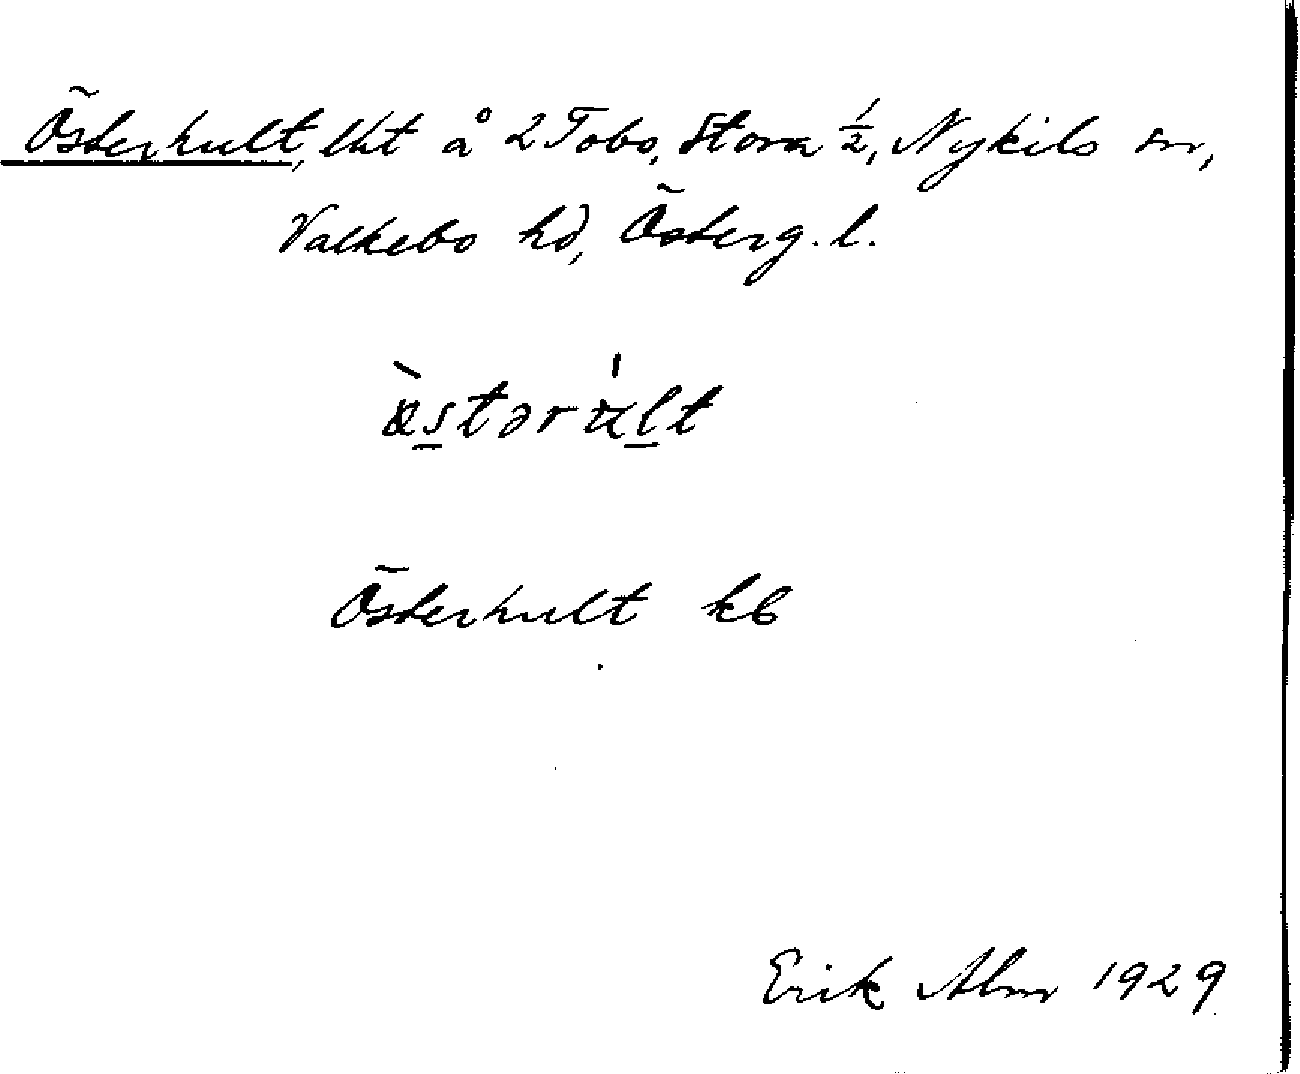 Österhult, lht å 2 Tobo, Stora ½, Nykils sn,
Valkebo hd, Österg. l.
Österhult kb
Erik Alm 1929